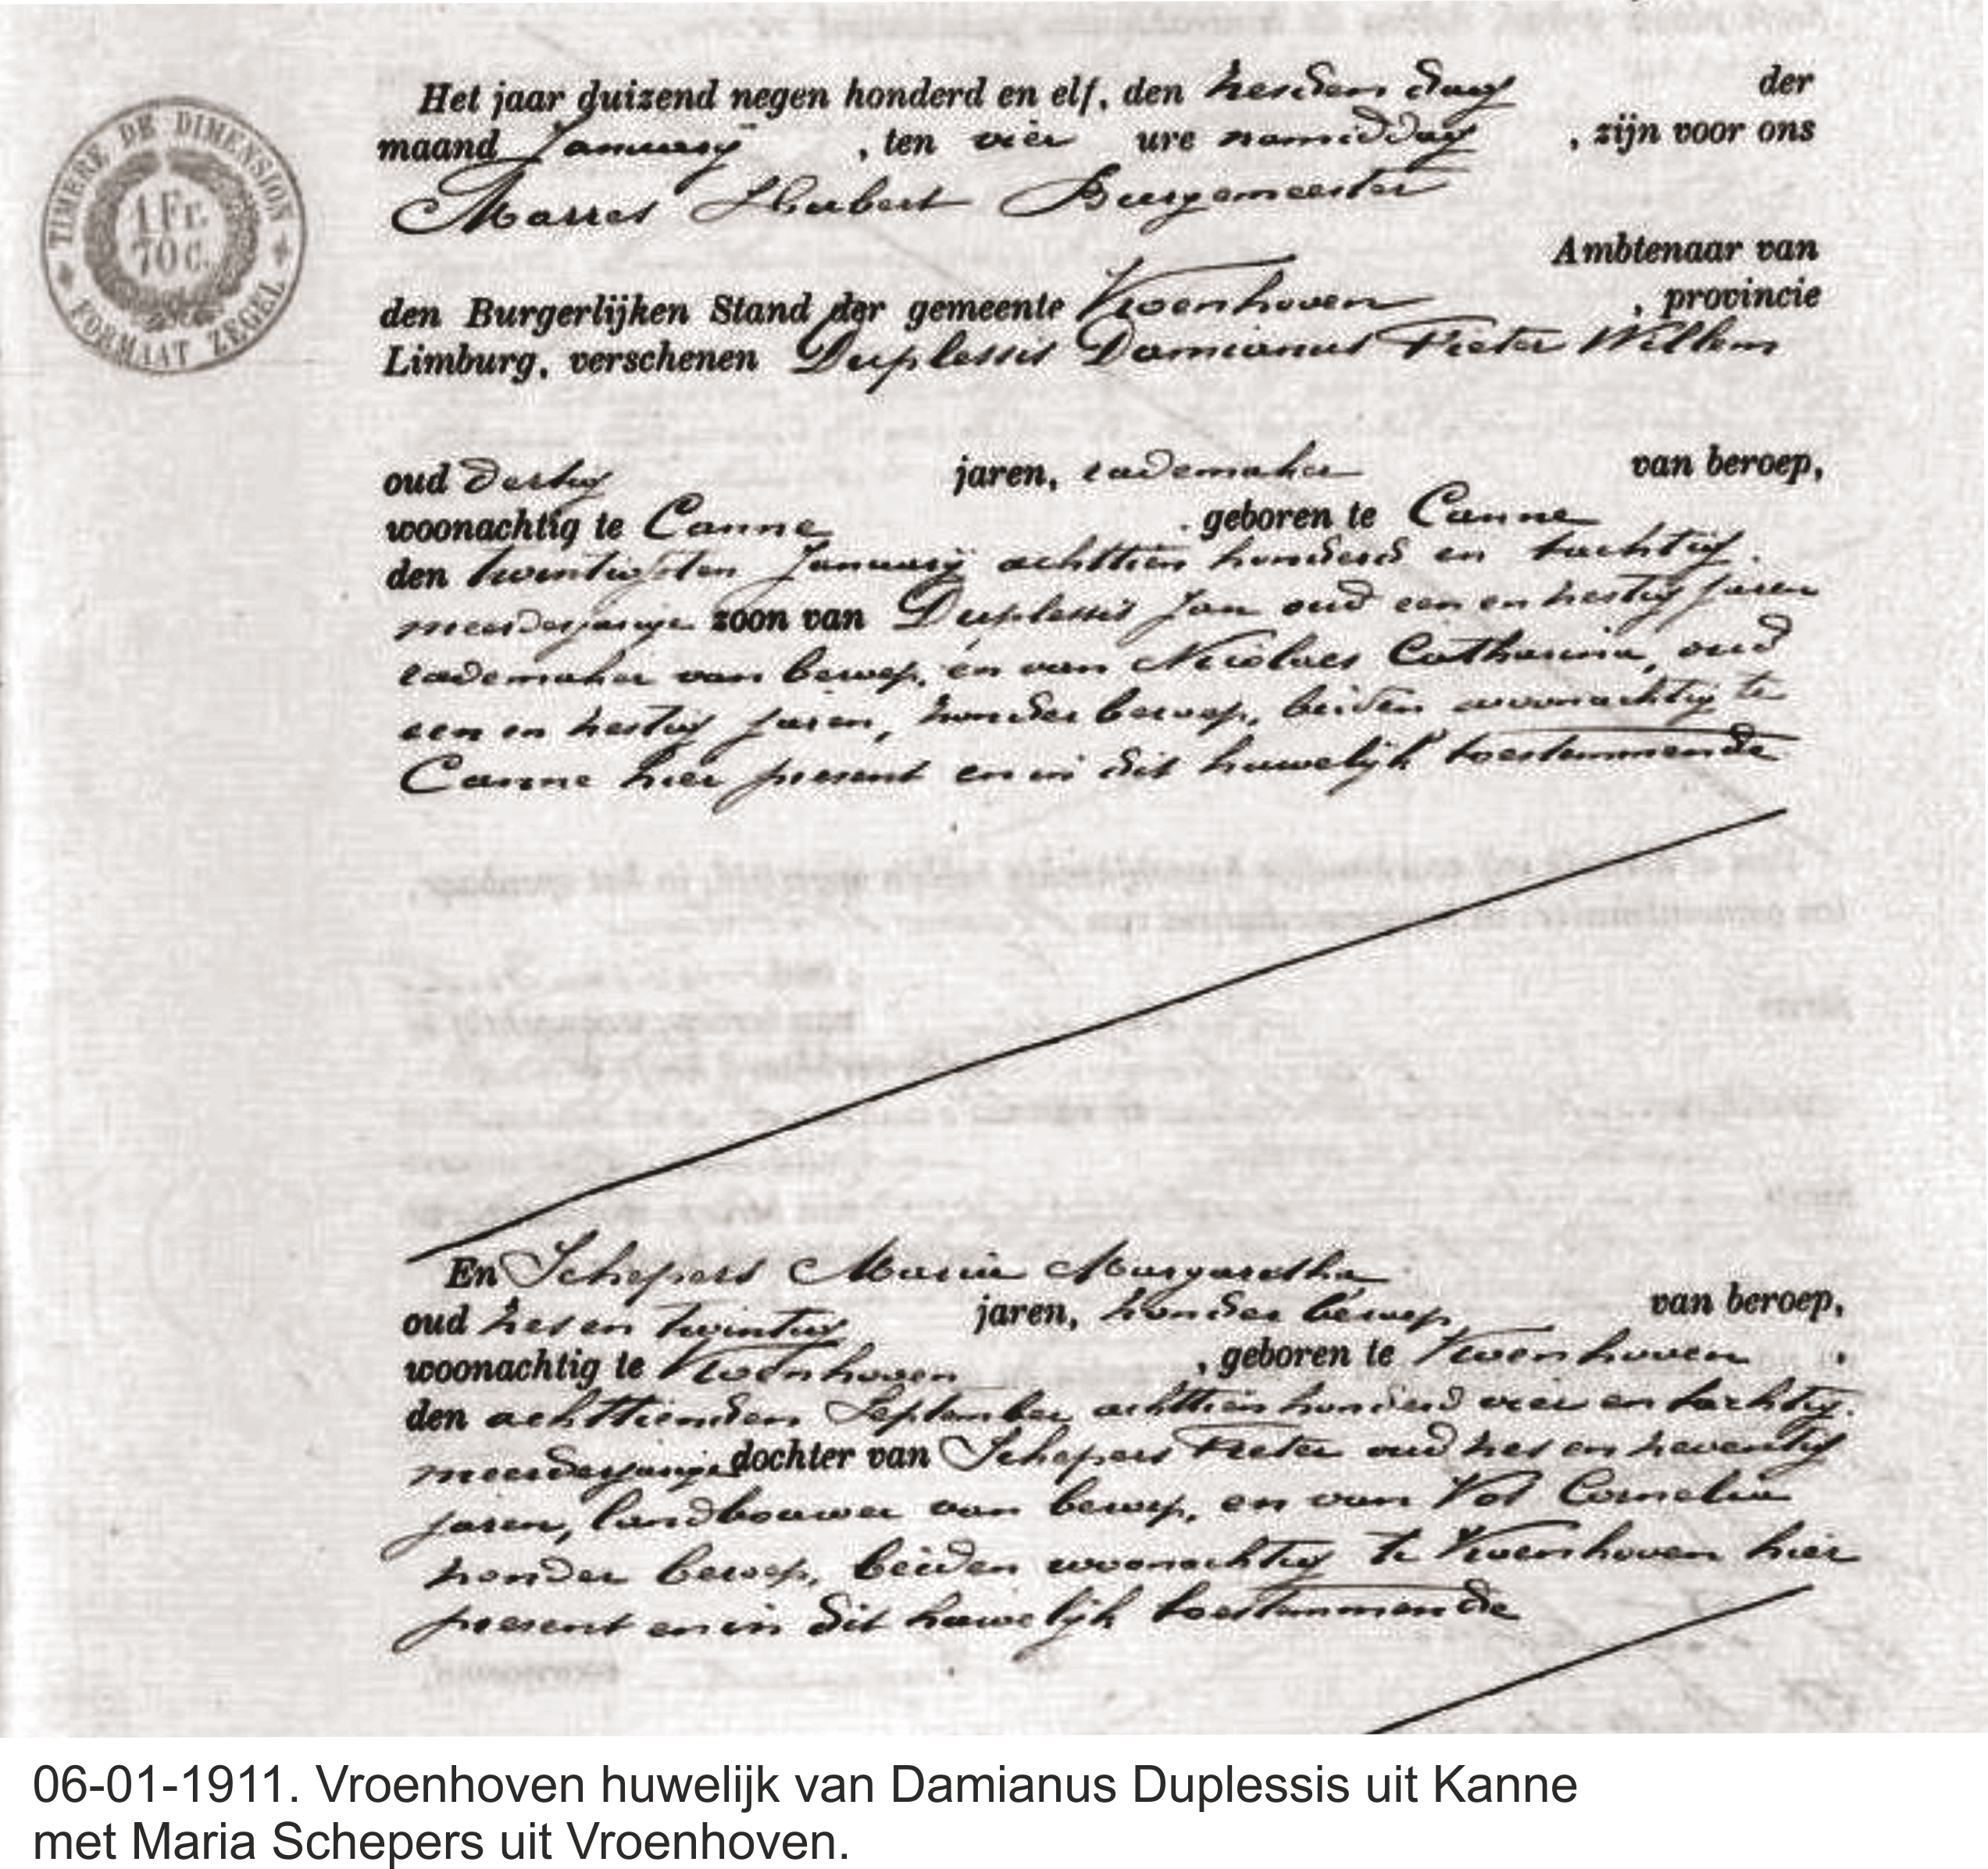 TIMBRE DE DIMENSION
1 Fr.
70 C.
FORMAAT ZEGEL
Het jaar duizend negen honderd en elf, den zesden dag der
maand January , ten vier ure namiddag , zijn voor ons
Marres Hubert Burgemeester
Ambtenaar van
den Burgerlijken Stand der gemeente Vroenhoven , provincie
Limburg, verschenen Duplessis Damianus Pieter Willem
oud dertig jaren, rademaker van beroep,
woonachtig te Canne . geboren te Canne
den twintigsten January achttien honderd en tachtig.
meerderjarige zoon van Duplessis Jan oud een en zestig jaren
rademaker van beroep, en van Nicolaes Catharina, oud
een en zestig jaren, zonder beroep, beiden woonachtig te
Canne hier present en in dit huwelijk toestemmende
En Schepers Maria Margaretha
oud zes en twintig jaren, zonder beroep van beroep,
woonachtig te Vroenhoven , geboren te Vroenhoven .
den achttienden September achttien honderd vier en tachtig.
meerderjarige dochter van Schepers Pieter oud zes en zeventig
jaren, landbouwer van beroep, en van Vos Cornelia
zonder beroep, beiden woonachtig te Vroenhoven hier
present en in dit huwelijk toestemmende
06-01-1911. Vroenhoven huwelijk van Damianus Duplessis uit Kanne
met Maria Schepers uit Vroenhoven.